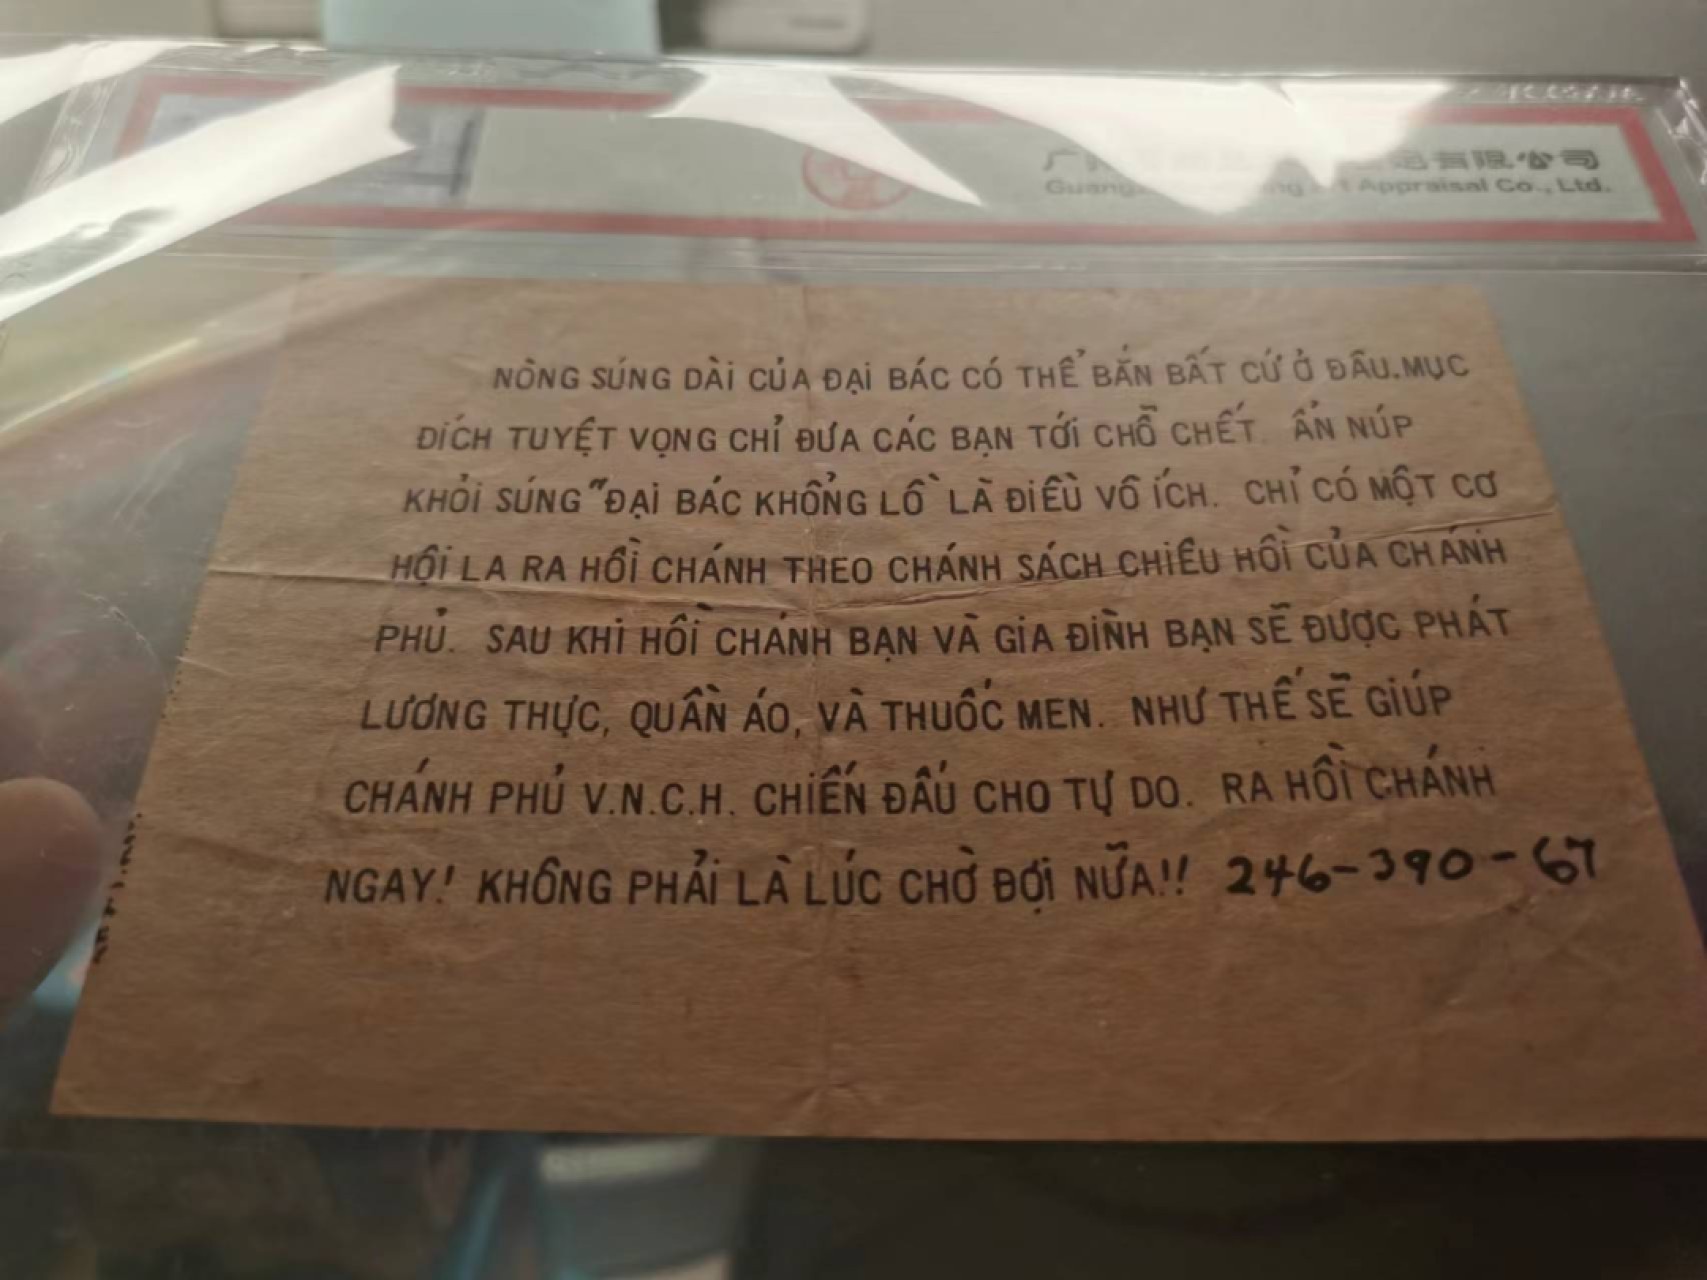 有限公司
Appraisal Co., Ltd.
NÒNG SÚNG DÀI CỦA ĐẠI BÁC CÓ THỂ BẮN BẤT CỨ Ở ĐÂU. MỤC
ĐÍCH TUYỆT VỌNG CHỈ ĐƯA CÁC BẠN TỚI CHỖ CHẾT. ẨN NÚP
KHỎI SÚNG "ĐẠI BÁC KHỔNG LỒ" LÀ ĐIỀU VÔ ÍCH. CHỈ CÓ MỘT CƠ
HỘI LA RA HỒI CHÁNH THEO CHÁNH SÁCH CHIÊU HỒI CỦA CHÁNH
PHỦ. SAU KHI HỒI CHÁNH BẠN VÀ GIA ĐÌNH BẠN SẼ ĐƯỢC PHÁT
LƯƠNG THỰC, QUẦN ÁO, VÀ THUỐC MEN. NHƯ THẾ SẼ GIÚP
CHÁNH PHỦ V.N.C.H. CHIẾN ĐẤU CHO TỰ DO. RA HỒI CHÁNH
NGAY! KHÔNG PHẢI LÀ LÚC CHỜ ĐỢI NỮA!! 246-390-67